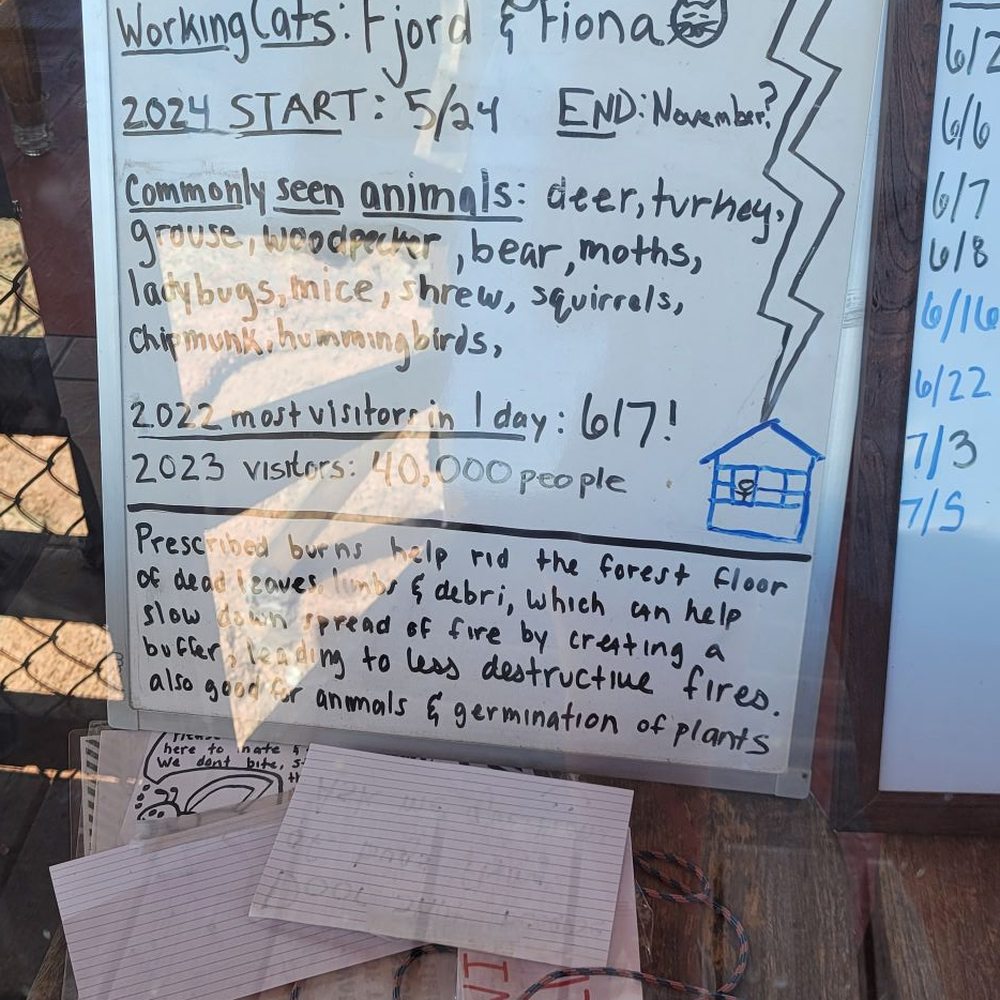 Working Cats: Fjord & Fiona
2024 START: 5/24 END: November?
Commonly seen animals: deer, turkey,
grouse, woodpecker, bear, moths,
ladybugs, mice, shrew, squirrels,
chipmunk, hummingbirds,
2022 most visitors in 1 day: 617!
2023 visitors: 40,000 people
Prescribed burns help rid the forest floor
of dead leaves, limbs & debri, which can help
slow down spread of fire by creating a
buffer, leading to less destructive fires.
also good for animals & germination of plants
here to mate &
We dont bite,
6/2
6/6
6/7
6/8
6/16
6/22
7/3
7/5